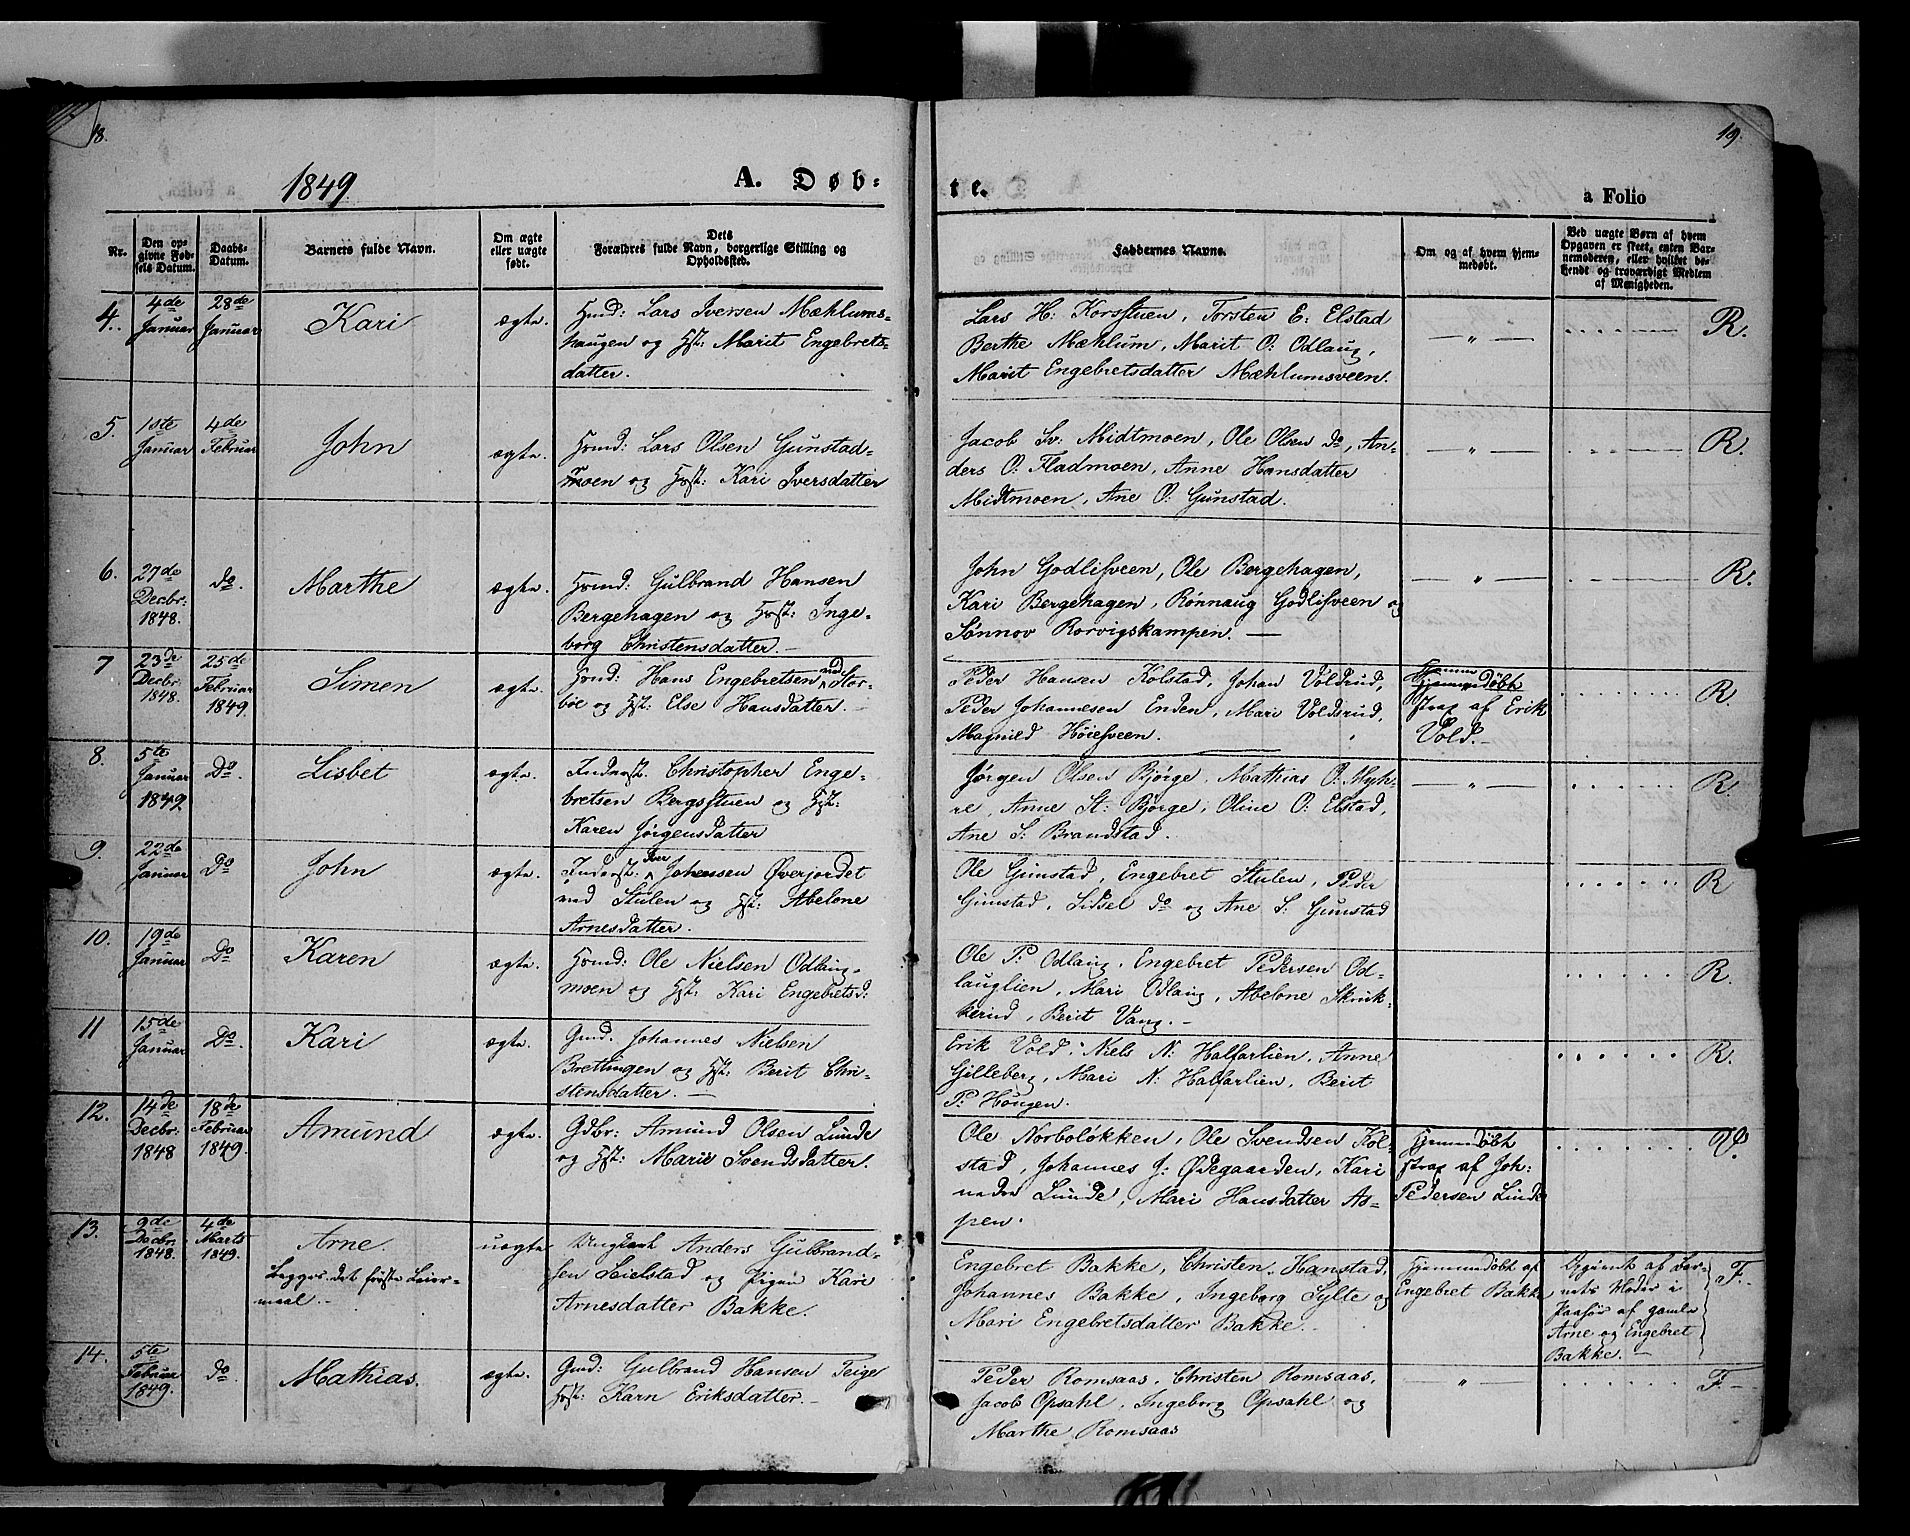 18.
19.
1849
A. Døb-
te.
a Folio
Nr.
Den op-
givne Fød-
sels Datum.
Daabs-
Datum.
Barnets fulde Navn.
Om ægte
eller uægte
født.
Dets
Forældres fulde Navn, borgerlige Stilling og
Opholdssted.
Faddernes Navne.
Om og af hvem hjem-
medøbt.
Ved uægte Børn af hvem
Opgaven er skeet, enten Bar-
nemoderen, eller hvilket be-
kjendt og troværdigt Medlem
af Menigheden.
4.
4de
Januar
28de
Januar
Kari
ægte.
Hmd: Lars Iversen Mæhlums-
haugen og Hst: Marit Engebrets-
datter.
Lars H: Korsstuen, Torsten E: Elstad
Berthe Mæhlum, Marit O: Odlaug,
Marit Engebretsdatter Mæhlumsveen.
— " —
R.
5.
1ste
Januar
4de
Februar
John
ægte.
Hmd: Lars Olsen Gunstad-
moen og Hst: Kari Iversdatter
Jacob Iv: Midtmoen, Ole Olsen do, An-
ders O: Fladmoen, Anne Hansdatter
Midtmoen, Ane O: Gunstad.
— " —
R.
6.
27de
Decbr:
1848.
do.
Marthe
ægte.
Hmd: Gulbrand Hansen
Bergehagen og Hst: Inge-
borg Christensdatter.—
John Godlifsveen, Ole Bergehagen,
Kari Bergehagen, Rønnaug Godlifsveen og
Sønnov Rorvigskampen. —
— " —
R.
7
23de
Decbr:
1848.
25de
Februar
1849.
Simen
ægte.
Hmd: Hans Engebretsen nd Stor-
bøe og Hst: Else Hansdatter.—
Peder Hansen Kolstad, Johan Voldrud,
Peder Johannesen Enden, Mari Voldsrud,
Magnild Høiesveen.
Hjemmedøbt
strax af Erik
Vold.—
R.
8.
5te
Januar
1849.
Do.
Lisbet
ægte.
Inderst. Christopher Enge-
bretsen Bergsstuen og Hst:
Karen Jørgensdatter
Jørgen Olsen Bjørge, Mathias O: Myh-
re, Anne St: Bjørge, Oline O: Elstad,
Ane S: Brandstad.
— " —
R
9.
22de
Januar
Do
John
ægte.
Inderst: Iver Johansen Øverjordet
ved Stulen og Hst: Abelone
Arnesdatter.
Ole Gunstad, Engebret Stulen, Peder
Gunstad, Sidsel do og Ane S: Gunstad
R
10.
19de
Januar
Do
Karen
ægte.
Hmd: Ole Nielsen Odlaug-
moen og Hst: Kari Engebretsd:
Ole P: Odlaug, Engebret Pedersen Od-
lauglien, Mari Odlaug, Abelone Skruk-
kerud, Berit Vang.—
R.
11
15de
Januar
Do.
Kari
ægte.
Gmd. Johannes Nielsen
Brettingen og Hst: Berit Chri-
stensdatter. —
Erik Vold, Niels N: Halfarlien, Anne
Gilleberg, Mari N: Halfarlien, Berit
P: Hougen.
R.
12.
14de
Decbr:
1848
18de
Februar
1849.
Amund
ægte.
Gdbr: Amund Olsen Lunde
og Hst: Marie Svendsdatter.
Ole Norboløkken, Ole Svendsen Kol-
stad, Johannes J: Ødegaarden, Kari
nedre Lunde, Mari Hansdatter As-
pen.
Hjemmedøbt
strax af Joh:
Pedersen Lunde
13.
9de
Decbr:
1848.
4de
Marts
1849.
Arne.
Begges det første Leier-
maal.—
uægte
Ungkarl Anders Gulbrand-
sen Leielstad og Pigen Kari
Arnesdatter Bakke.
Engebret Bakke, Christen Hanstad,
Johannes Bakke, Ingeborg Sylte og
Mari Engebretsdatter Bakke.—
Hjemmedøbt af
Engebret Bakke
Opgivet af Bar-
nets Moder i
Paahør af gamle
Arne og Engebret
Bakke.—
F.—
14.
5te
Februar
1849.
do
Mathias.
ægte.
Gmd: Gulbrand Hansen Teige
Hst: Karn Eriksdatter.—
Peder Romsaas, Christen Romsaas,
Jacob Opsahl, Ingeborg Opsahl og
Marthe Romsaas
— " —
F.—